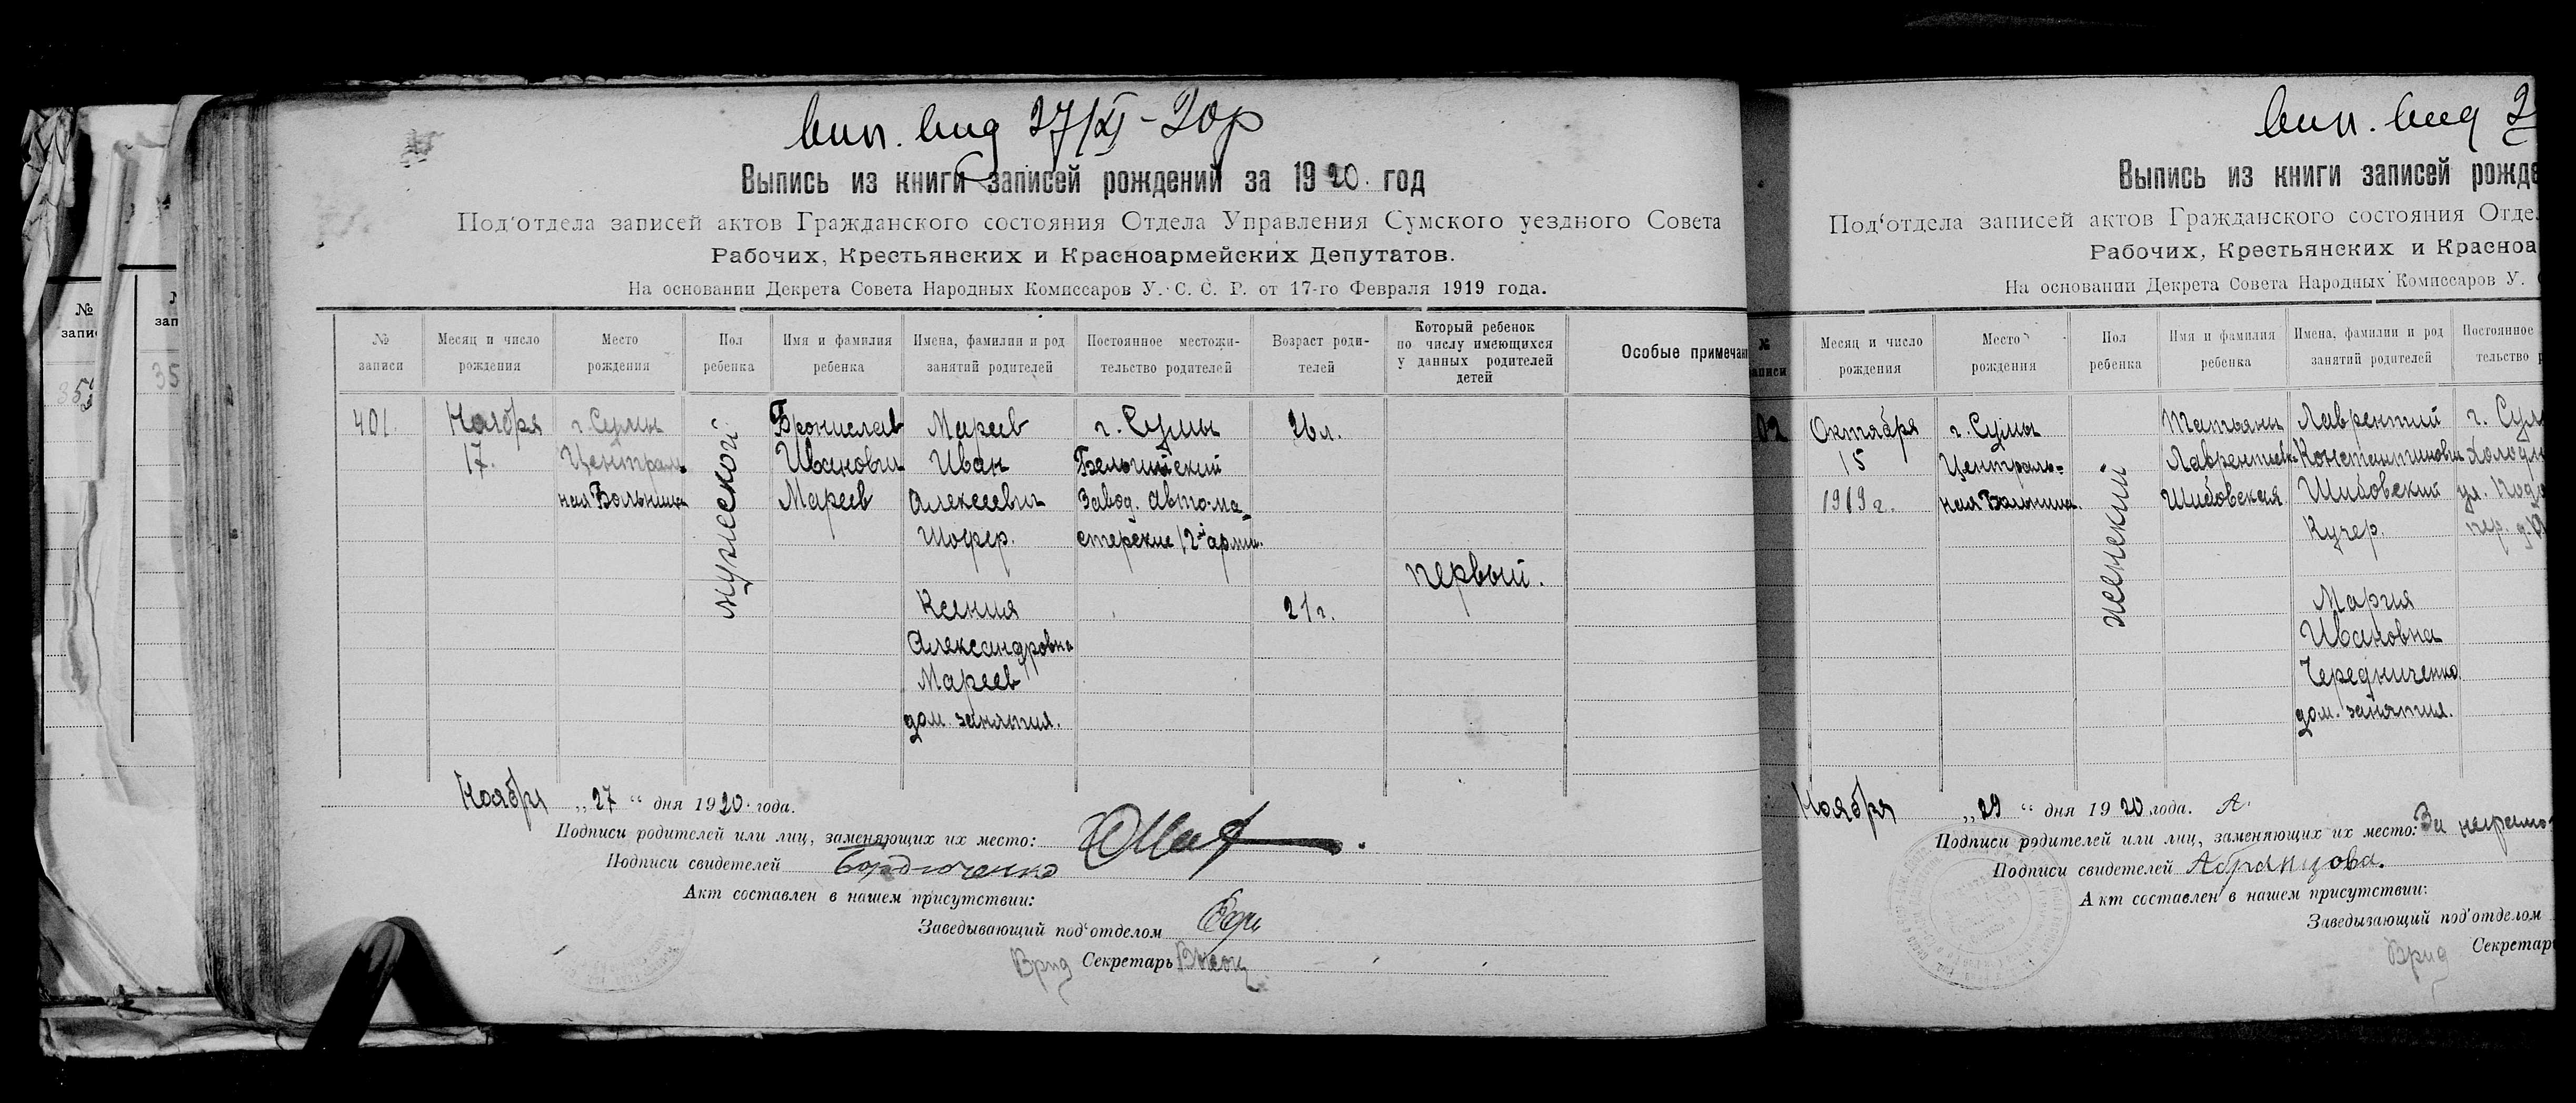 вип. вид 27/XI - 20р
Выпись из книги записей рождений за 1920. год
Под'отдела записей актов Гражданского состояния Отдела Управления Сумского уездного Совета
Рабочих, Крестьянских и Красноармейских Депутатов.
На основании Декрета Совета Народных Комиссаров У. С. С. Р. от 17-го Февраля 1919 года.
№ записи
Месяц и число рождения
Место рождения
Пол ребенка
Имя и фамилия ребенка
Имена, фамилии и род занятий родителей
Постоянное местожи-
тельство родителей
Возраст роди-
телей
Который ребенок
по числу имеющихся
у данных родителей
детей
Особые примечан
401.
Ноября
17.
г. Сумы
Централь
ная Больница
мужеской
Бронислав
Иванович
Мареев
Мареев
Иван
Алексеевич
Шофер.
Ксения
Александровна
Мареев
дом. занятия.
г. Сумы
Бельгийский
Завод. Авто-ма-
стерские 12й арми.
26 л.
21 г.
первый.
Ноября „27“ дня 1920 года.
Подписи родителей или лиц, заменяющих их место:
Подписи свидетелей
Акт составлен в нашем присутствии:
Заведывающий под'отделом
Врид Секретарь
№
запи
зап
35
вип. вид 2
Выпись из книги записей рожде
Под'отдела записей актов Гражданского состояния Отде
Рабочих, Крестьянских и Красноа
На основании Декрета Совета Народных Комиссаров У. С
№
аписи
Месяц и число рождения
Место рождения
Пол ребенка
Имя и фамилия ребенка
Имена, фамилии и род занятий родителей
Постоянное
тельство р
02
Октября
15
1919 г.
г. Сумы
Централь-
ная Больница.
женский
Татьяна
Лаврентьев
Шидовская
Лаврентий
Константинович
Шидовский
Кучер.
Мария
Ивановна
Чередниченко
дом. занятия.
г. Сум
Холодн
ул.
пер. д.
Ноября „29“ дня 1920 года. А.
Подписи родителей или лиц, заменяющих их место: За неграмо
Подписи свидетелей Абранцова.
Акт составлен в нашем присутствии:
Заведывающий под'отделом
Врид Секретар